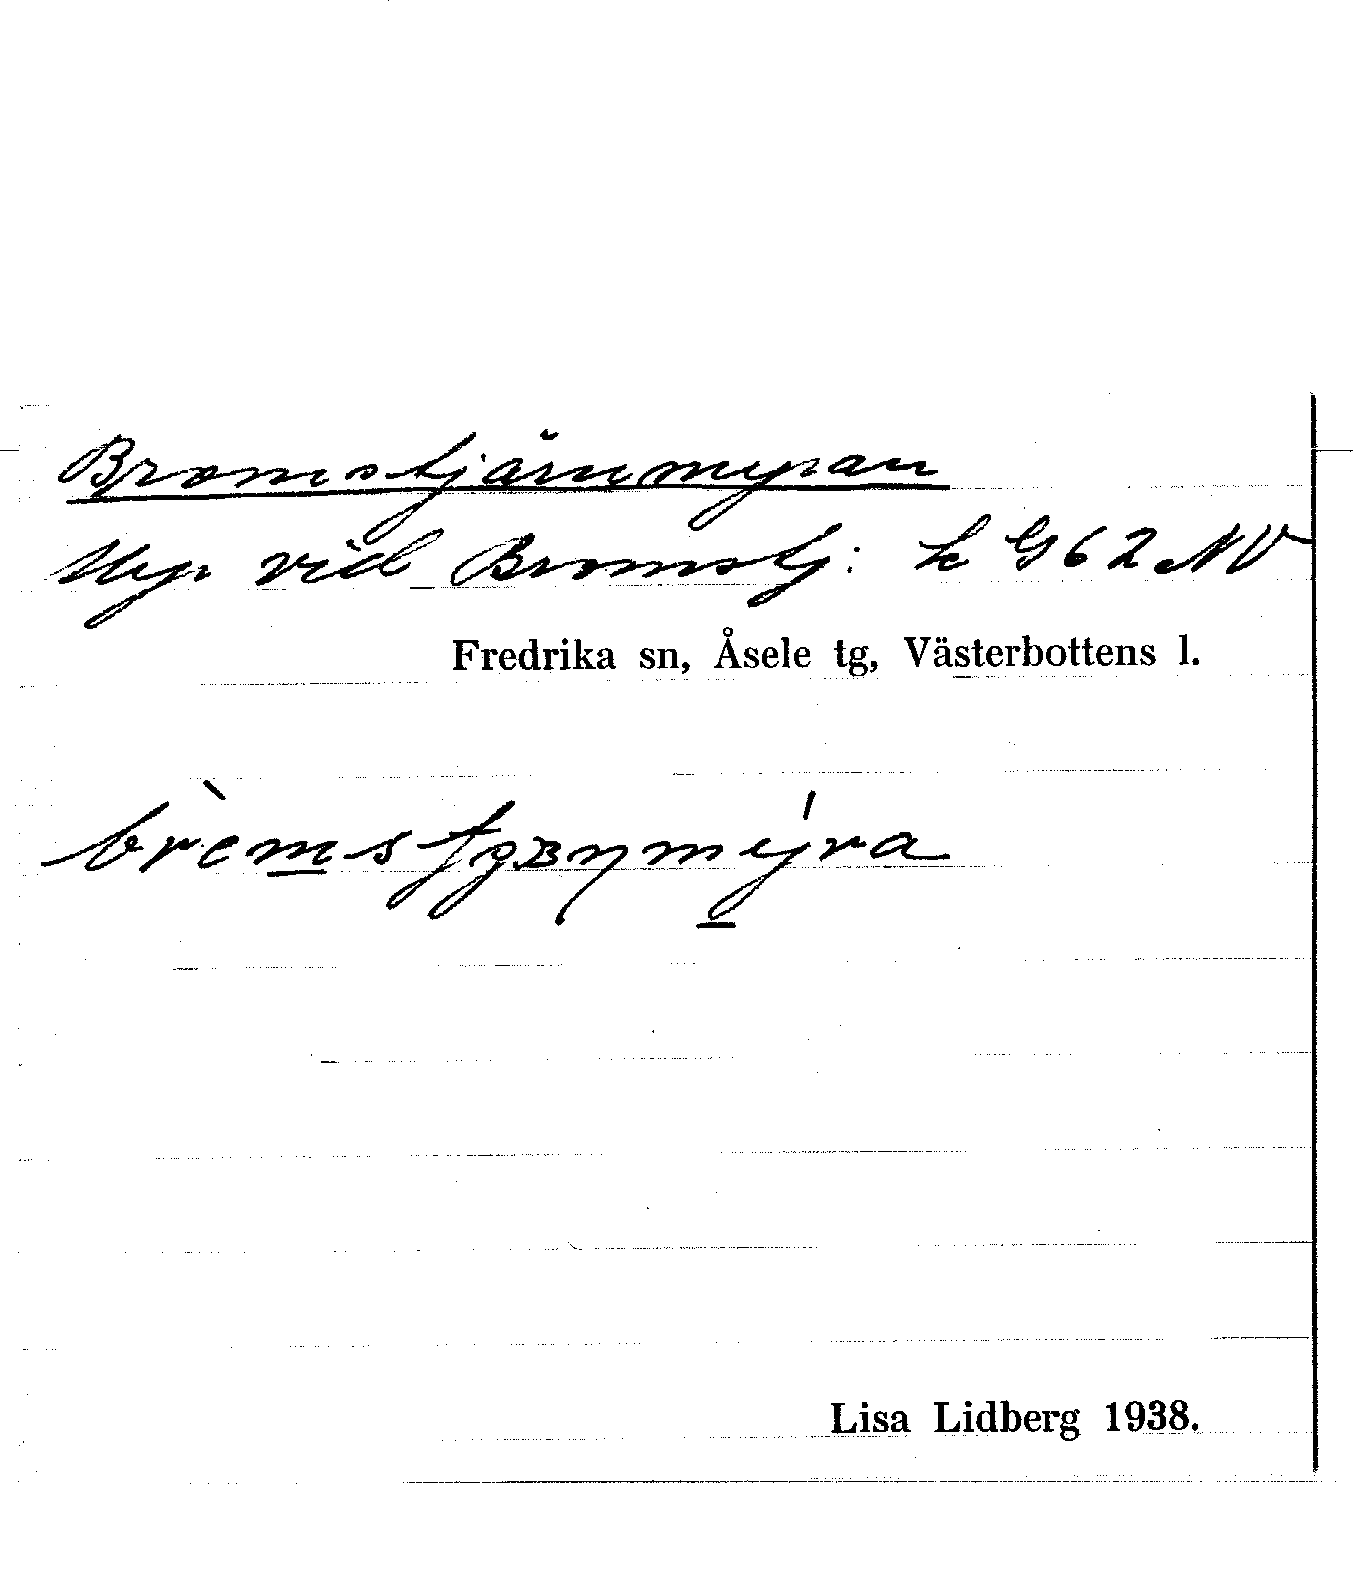 Bromstjärnmyran
Myr vid Bromstj: k G 62 NV
Fredrika sn, Åsele tg, Västerbottens l.
Lisa Lidberg 1938.